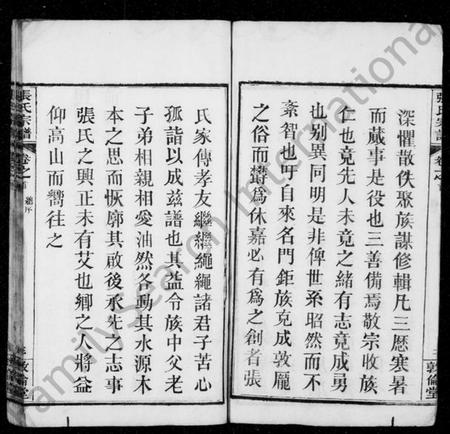 張氏宗譜
卷之首
敦倫堂
深懼散佚聚族謀修輯凡三歷寒暑
而蕆事是役也三善備焉敬宗收族
仁也竟先人未竟之緒有志竟成勇
也別異同明是非俾世系昭然而不
紊智也吁自來名門鉅族克成敦龐
之俗而鬱為休嘉必有為之創者張
氏家傳孝友繼繼繩繩諸君子苦心
孤詣以成茲譜也其益令族中父老
子弟相親相愛油然各動其水源木
本之思而恢廓其啟後承先之志事
張氏之興正未有艾也鄉之人將益
仰高山而嚮往之
張氏宗譜
卷之首
敦倫堂
FamilySearch International